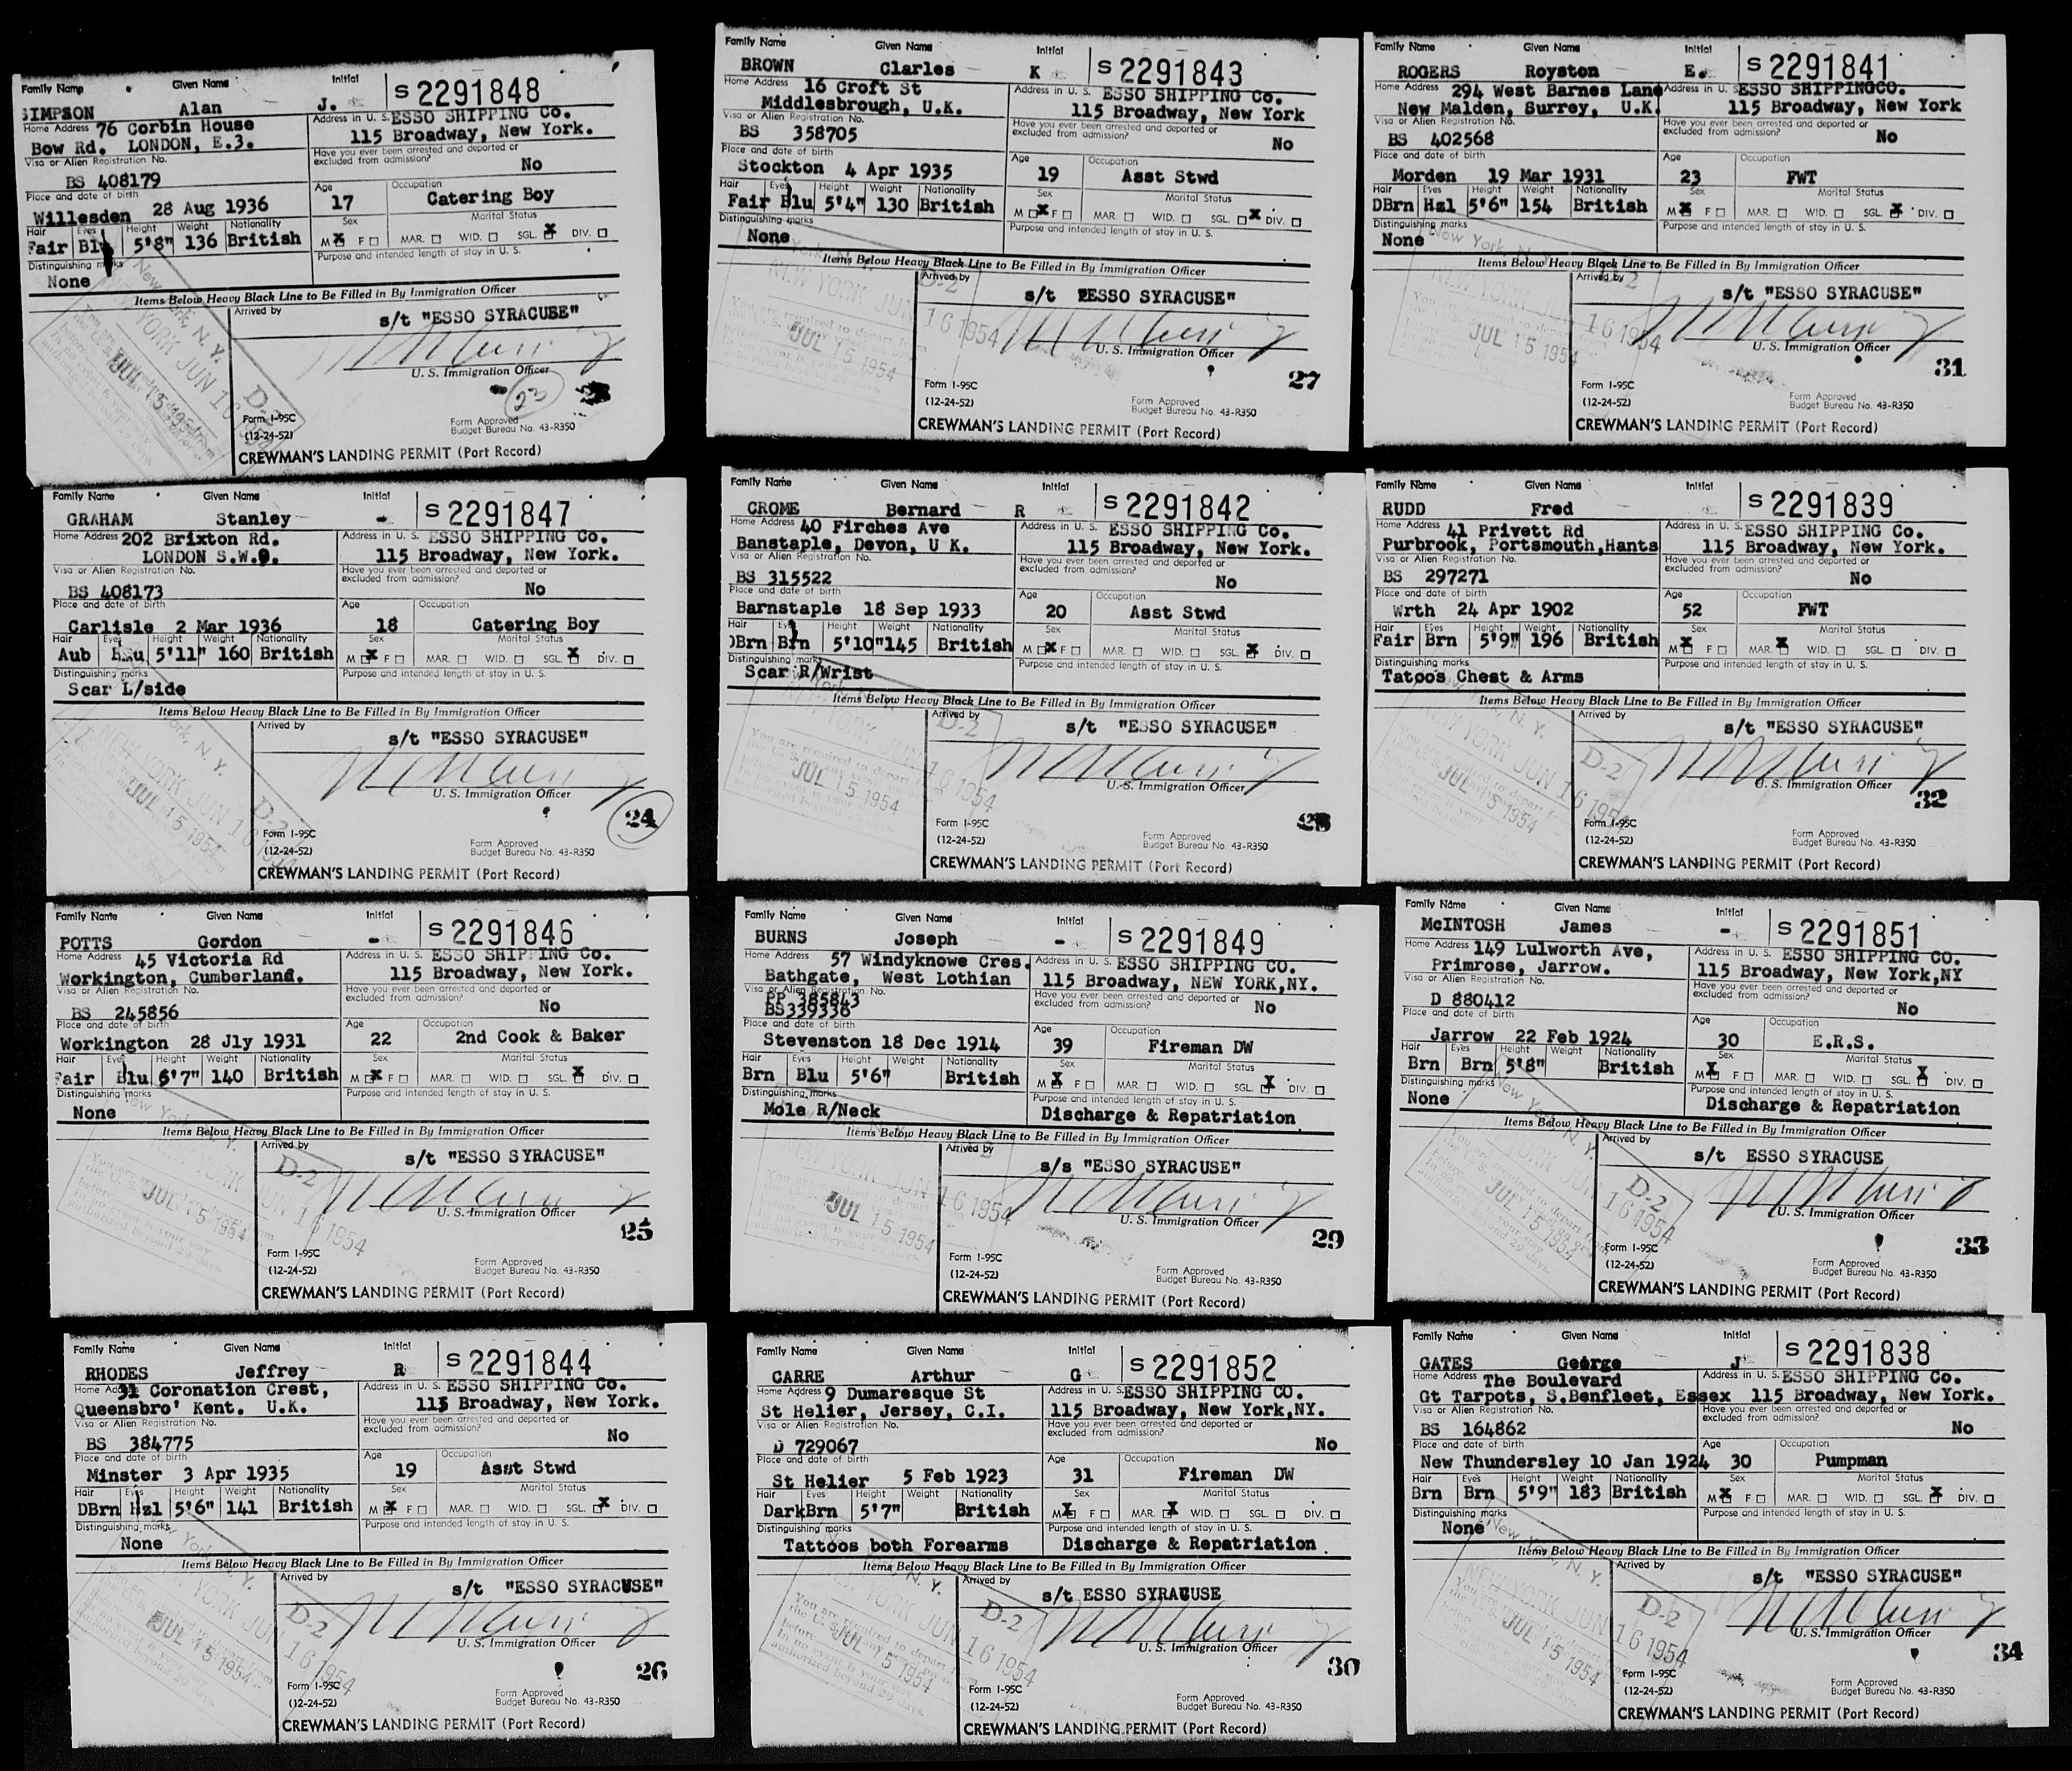 Family Name Given Name Initial S 2291848
SIMPSON Alan J.
Home Address 76 Corbin House Address in U. S. ESSO SHIPPING Co.
Bow Rd. LONDON, E.3. 115 Broadway, New York.
Visa or Alien Registration No. Have you ever been arrested and deported or excluded from admission?
BS 408179 No
Place and date of birth Age Occupation
Willesden 28 Aug 1936 17 Catering Boy
Hair Eyes Height Weight Nationality Sex Marital Status
Fair Blu 5'8" 136 British M X F MAR. WID. SGL. X DIV.
Distinguishing marks Purpose and intended length of stay in U. S.
None
Items Below Heavy Black Line to Be Filled in By Immigration Officer
Arrived by
s/t "ESSO SYRACUSE"
U. S. Immigration Officer
New York, N. Y.
NEW YORK JUN 16
D-2
JUL 15 1954
23
Form I-95C
(12-24-52)
Form Approved
Budget Bureau No. 43-R350
CREWMAN'S LANDING PERMIT (Port Record)
Family Name Given Name Initial S 2291847
GRAHAM Stanley -
Home Address 202 Brixton Rd. Address in U. S. ESSO SHIPPING Co.
LONDON S.W.9. 115 Broadway, New York.
Visa or Alien Registration No. Have you ever been arrested and deported or excluded from admission?
BS 408173 No
Place and date of birth Age Occupation
Carlisle 2 Mar 1936 18 Catering Boy
Hair Eyes Height Weight Nationality Sex Marital Status
Aub 5'11" 160 British M X F MAR. WID. SGL. X DIV.
Distinguishing marks Purpose and intended length of stay in U. S.
Scar L/side
Items Below Heavy Black Line to Be Filled in By Immigration Officer
Arrived by
s/t "ESSO SYRACUSE"
U. S. Immigration Officer
NEW YORK JUN 16 1954
D-2
JUL 15 1954
24
Form I-95C
(12-24-52)
Form Approved
Budget Bureau No. 43-R350
CREWMAN'S LANDING PERMIT (Port Record)
Family Name Given Name Initial S 2291846
POTTS Gordon -
Home Address 45 Victoria Rd Address in U. S. ESSO SHIPPING Co.
Workington, Cumberland. 115 Broadway, New York.
Visa or Alien Registration No. Have you ever been arrested and deported or excluded from admission?
BS 245856 No
Place and date of birth Age Occupation
Workington 28 Jly 1931 22 2nd Cook & Baker
Hair Eyes Height Weight Nationality Sex Marital Status
Fair Blu 5'7" 140 British M X F MAR. WID. SGL. X DIV.
Distinguishing marks Purpose and intended length of stay in U. S.
None
Items Below Heavy Black Line to Be Filled in By Immigration Officer
Arrived by
s/t "ESSO SYRACUSE"
U. S. Immigration Officer
NEW YORK JUN 16 1954
D-2
JUL 15 1954
25
Form I-95C
(12-24-52)
Form Approved
Budget Bureau No. 43-R350
CREWMAN'S LANDING PERMIT (Port Record)
Family Name Given Name Initial S 2291844
RHODES Jeffrey R
Home Address 31 Coronation Crest, Address in U. S. ESSO SHIPPING Co.
Queensbro' Kent. U.K. 115 Broadway, New York.
Visa or Alien Registration No. Have you ever been arrested and deported or excluded from admission?
BS 384775 No
Place and date of birth Age Occupation
Minster 3 Apr 1935 19 Asst Stwd
Hair Eyes Height Weight Nationality Sex Marital Status
DBrn Hzl 5'6" 141 British M X F MAR. WID. SGL. X DIV.
Distinguishing marks Purpose and intended length of stay in U. S.
None
Items Below Heavy Black Line to Be Filled in By Immigration Officer
Arrived by
s/t "ESSO SYRACUSE"
U. S. Immigration Officer
NEW YORK JUN 16 1954
D-2
JUL 15 1954
26
Form I-95C
(12-24-52)
Form Approved
Budget Bureau No. 43-R350
CREWMAN'S LANDING PERMIT (Port Record)
Family Name Given Name Initial S 2291843
BROWN Clarles K
Home Address 16 Croft St Address in U. S. ESSO SHIPPING Co.
Middlesbrough, U.K. 115 Broadway, New York
Visa or Alien Registration No. Have you ever been arrested and deported or excluded from admission?
BS 358705 No
Place and date of birth Age Occupation
Stockton 4 Apr 1935 19 Asst Stwd
Hair Eyes Height Weight Nationality Sex Marital Status
Fair Blu 5'4" 130 British M X F MAR. WID. SGL. X DIV.
Distinguishing marks Purpose and intended length of stay in U. S.
None
Items Below Heavy Black Line to Be Filled in By Immigration Officer
Arrived by
s/t "ESSO SYRACUSE"
U. S. Immigration Officer
NEW YORK JUN 16 1954
D-2
JUL 15 1954
27
Form I-95C
(12-24-52)
Form Approved
Budget Bureau No. 43-R350
CREWMAN'S LANDING PERMIT (Port Record)
Family Name Given Name Initial S 2291842
CROME Bernard R
Home Address 40 Firches Ave Address in U. S. ESSO SHIPPING Co.
Banstaple, Devon, U K. 115 Broadway, New York.
Visa or Alien Registration No. Have you ever been arrested and deported or excluded from admission?
BS 315522 No
Place and date of birth Age Occupation
Barnstaple 18 Sep 1933 20 Asst Stwd
Hair Eyes Height Weight Nationality Sex Marital Status
DBrn Brn 5'10" 145 British M X F MAR. WID. SGL. X DIV.
Distinguishing marks Purpose and intended length of stay in U. S.
Scar R/Wrist
Items Below Heavy Black Line to Be Filled in By Immigration Officer
Arrived by
s/t "ESSO SYRACUSE"
U. S. Immigration Officer
NEW YORK JUN 16 1954
D-2
JUL 15 1954
28
Form I-95C
(12-24-52)
Form Approved
Budget Bureau No. 43-R350
CREWMAN'S LANDING PERMIT (Port Record)
Family Name Given Name Initial S 2291849
BURNS Joseph -
Home Address 57 Windyknowe Cres. Address in U. S. ESSO SHIPPING CO.
Bathgate, West Lothian 115 Broadway, NEW YORK,NY.
Visa or Alien Registration No. Have you ever been arrested and deported or excluded from admission?
PP 385843
BS339336 No
Place and date of birth Age Occupation
Stevenston 18 Dec 1914 39 Fireman DW
Hair Eyes Height Weight Nationality Sex Marital Status
Brn Blu 5'6" British M X F MAR. WID. SGL. X DIV.
Distinguishing marks Purpose and intended length of stay in U. S.
Mole R/Neck Discharge & Repatriation
Items Below Heavy Black Line to Be Filled in By Immigration Officer
Arrived by
s/s "ESSO SYRACUSE"
U. S. Immigration Officer
NEW YORK JUN 16 1954
JUL 15 1954
29
Form I-95C
(12-24-52)
Form Approved
Budget Bureau No. 43-R350
CREWMAN'S LANDING PERMIT (Port Record)
Family Name Given Name Initial S 2291852
CARRE Arthur G
Home Address 9 Dumaresque St Address in U. S. ESSO SHIPPING CO.
St Helier, Jersey, C.I. 115 Broadway, New York,NY.
Visa or Alien Registration No. Have you ever been arrested and deported or excluded from admission?
D 729067 No
Place and date of birth Age Occupation
St Helier 5 Feb 1923 31 Fireman DW
Hair Eyes Height Weight Nationality Sex Marital Status
Dark Brn 5'7" British M X F MAR. X WID. SGL. DIV.
Distinguishing marks Purpose and intended length of stay in U. S.
Tattoos both Forearms Discharge & Repatriation .
Items Below Heavy Black Line to Be Filled in By Immigration Officer
Arrived by
s/t ESSO SYRACUSE
U. S. Immigration Officer
NEW YORK JUN 16 1954
D-2
JUL 15 1954
30
Form I-95C
(12-24-52)
Form Approved
Budget Bureau No. 43-R350
CREWMAN'S LANDING PERMIT (Port Record)
Family Name Given Name Initial S 2291841
ROGERS Royston E.
Home Address 294 West Barnes Lane Address in U. S. ESSO SHIPPINGCO.
New Malden, Surrey, U.K. 115 Broadway, New York
Visa or Alien Registration No. Have you ever been arrested and deported or excluded from admission?
BS 402568 No
Place and date of birth Age Occupation
Morden 19 Mar 1931 23 FWT
Hair Eyes Height Weight Nationality Sex Marital Status
DBrn Hzl 5'6" 154 British M X F MAR. WID. SGL. X DIV.
Distinguishing marks Purpose and intended length of stay in U. S.
None
Items Below Heavy Black Line to Be Filled in By Immigration Officer
Arrived by
s/t "ESSO SYRACUSE"
U. S. Immigration Officer
NEW YORK JUN 16 1954
JUL 15 1954
31
Form I-95C
(12-24-52)
Form Approved
Budget Bureau No. 43-R350
CREWMAN'S LANDING PERMIT (Port Record)
Family Name Given Name Initial S 2291839
RUDD Fred
Home Address 41 Privett Rd Address in U. S. ESSO SHIPPING Co.
Purbrook, Portsmouth,Hants 115 Broadway, New York.
Visa or Alien Registration No. Have you ever been arrested and deported or excluded from admission?
BS 297271 No
Place and date of birth Age Occupation
Wrth 24 Apr 1902 52 FWT
Hair Eyes Height Weight Nationality Sex Marital Status
Fair Brn 5'9" 196 British M X F MAR. X WID. SGL. DIV.
Distinguishing marks Purpose and intended length of stay in U. S.
Tatoos Chest & Arms
Items Below Heavy Black Line to Be Filled in By Immigration Officer
Arrived by
s/t "ESSO SYRACUSE"
U. S. Immigration Officer
NEW YORK JUN 16 1954
D-2
JUL 15 1954
32
Form I-95C
(12-24-52)
Form Approved
Budget Bureau No. 43-R350
CREWMAN'S LANDING PERMIT (Port Record)
Family Name Given Name Initial S 2291851
McINTOSH James -
Home Address 149 Lulworth Ave, Address in U. S. ESSO SHIPPING CO.
Primrose, Jarrow. 115 Broadway, New York,NY
Visa or Alien Registration No. Have you ever been arrested and deported or excluded from admission?
D 880412 No
Place and date of birth Age Occupation
Jarrow 22 Feb 1924 30 E.R.S.
Hair Eyes Height Weight Nationality Sex Marital Status
Brn Brn 5'8" British M X F MAR. WID. SGL. X DIV.
Distinguishing marks Purpose and intended length of stay in U. S.
None Discharge & Repatriation
Items Below Heavy Black Line to Be Filled in By Immigration Officer
Arrived by
s/t ESSO SYRACUSE
U. S. Immigration Officer
New York, N. Y.
NEW YORK JUN 16 1954
D-2
JUL 15 1954
33
Form I-95C
(12-24-52)
Form Approved
Budget Bureau No. 43-R350
CREWMAN'S LANDING PERMIT (Port Record)
Family Name Given Name Initial S 2291838
GATES George J
Home Address The Boulevard Address in U. S. ESSO SHIPPING Co.
Gt Tarpots, S.Benfleet, Essex 115 Broadway, New York.
Visa or Alien Registration No. Have you ever been arrested and deported or excluded from admission?
BS 164862 No
Place and date of birth Age Occupation
New Thundersley 10 Jan 1924 30 Pumpman
Hair Eyes Height Weight Nationality Sex Marital Status
Brn Brn 5'9" 183 British M X F MAR. WID. SGL. X DIV.
Distinguishing marks Purpose and intended length of stay in U. S.
None
Items Below Heavy Black Line to Be Filled in By Immigration Officer
Arrived by
s/t "ESSO SYRACUSE"
U. S. Immigration Officer
New York, N. Y.
NEW YORK JUN 16 1954
D-2
JUL 15 1954
34
Form I-95C
(12-24-52)
Form Approved
Budget Bureau No. 43-R350
CREWMAN'S LANDING PERMIT (Port Record)